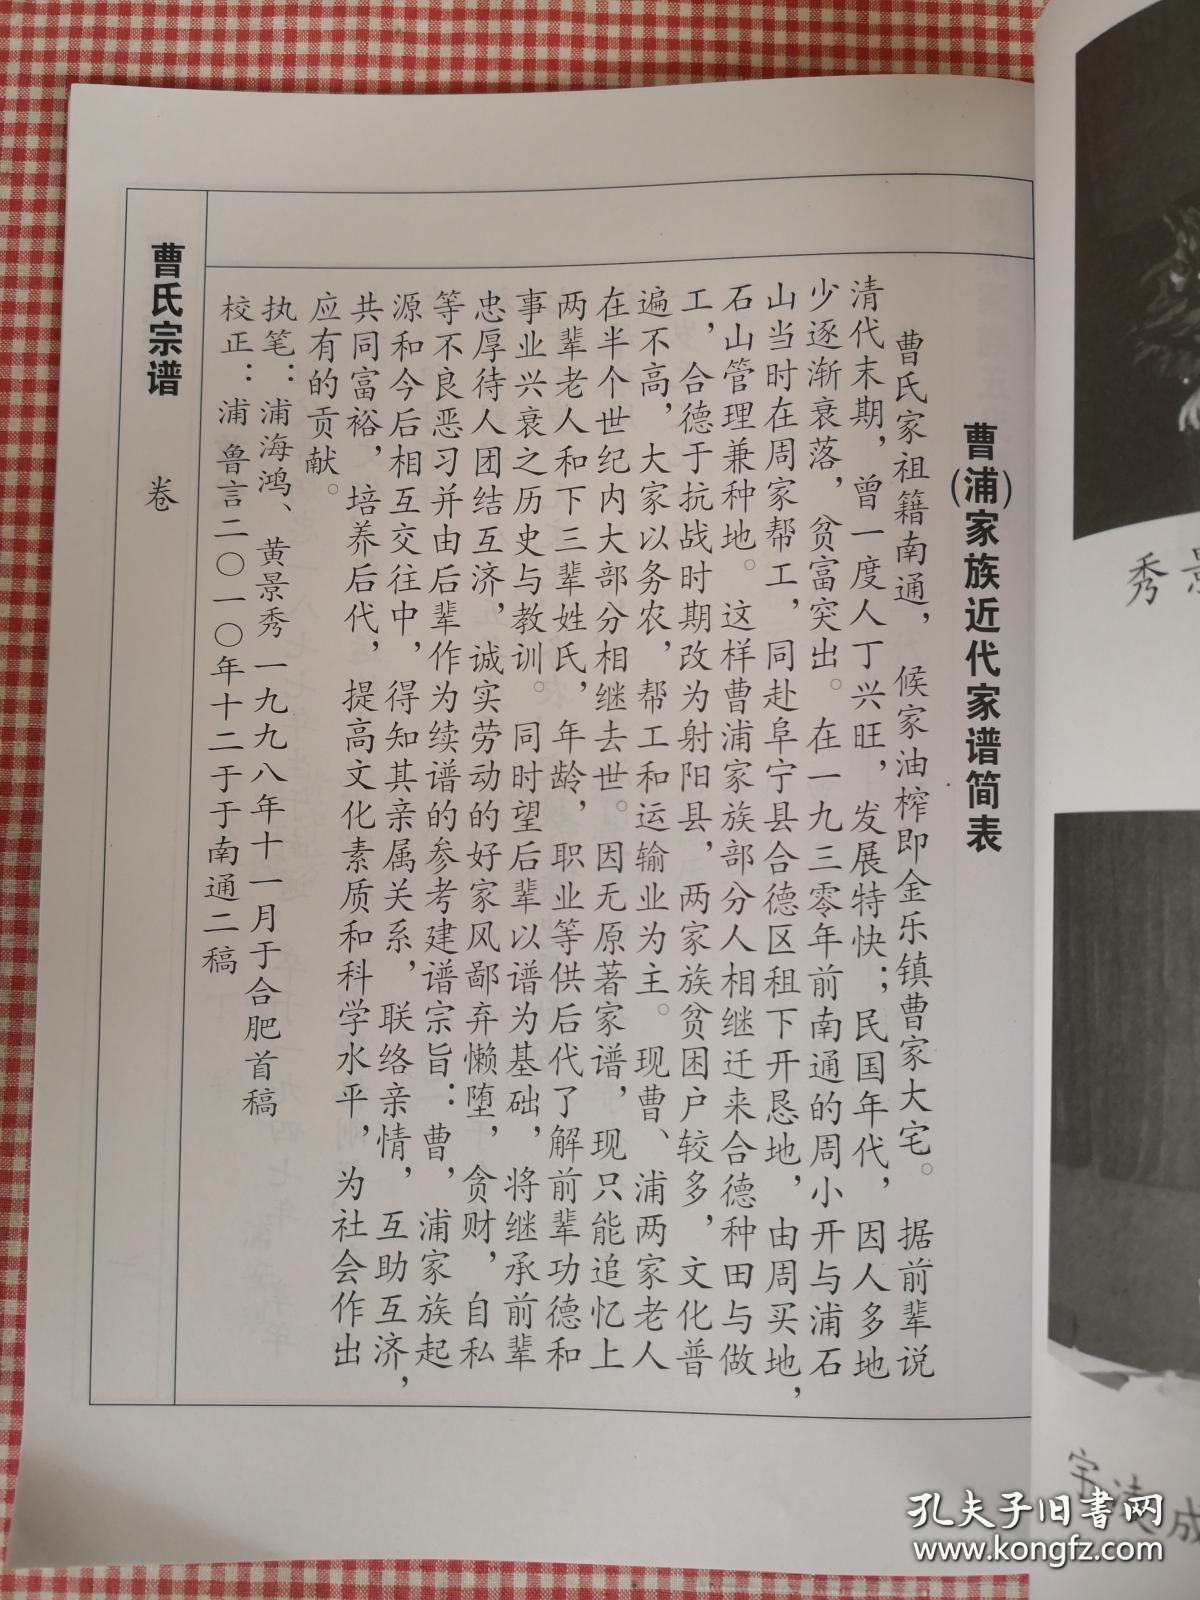 曹(浦)家族近代家谱简表
曹氏家祖籍南通，候家油榨即金乐镇曹家大宅。据前辈说
清代末期，曾一度人丁兴旺，发展特快；民国年代，因人多地
少逐渐衰落，贫富突出。在一九三零年前南通的周小开与浦石
山当时在周家帮工，同赴阜宁县合德区租下开恳地，由周买地，
石山管理兼种地。这样曹浦家族部分人相继迁来合德种田与做
工，合德于抗战时期改为射阳县，两家族贫困户较多，文化普
遍不高，大家以务农，帮工和运输业为主。现曹、浦两家老人
在半个世纪内大部分相继去世。因无原著家谱，现只能追忆上
两辈老人和下三辈姓氏，年龄，职业等供后代了解前辈功德和
事业兴衰之历史与教训。同时望后辈以谱为基础，将继承前辈
忠厚待人团结互济，诚实劳动的好家风鄙弃懒堕，贪财，自私
等不良恶习并由后辈作为续谱的参考建谱宗旨：曹，浦家族起
源和今后相互交往中，得知其亲属关系，联络亲情，互助互济，
共同富裕，培养后代，提高文化素质和科学水平，为社会作出
应有的贡献。
执笔：浦海鸿、黄景秀一九九八年十一月于合肥首稿
校正：浦鲁言二〇一〇年十二于于南通二稿
曹氏宗谱 卷
秀 景
成
孔夫子旧书网
www.kongfz.com